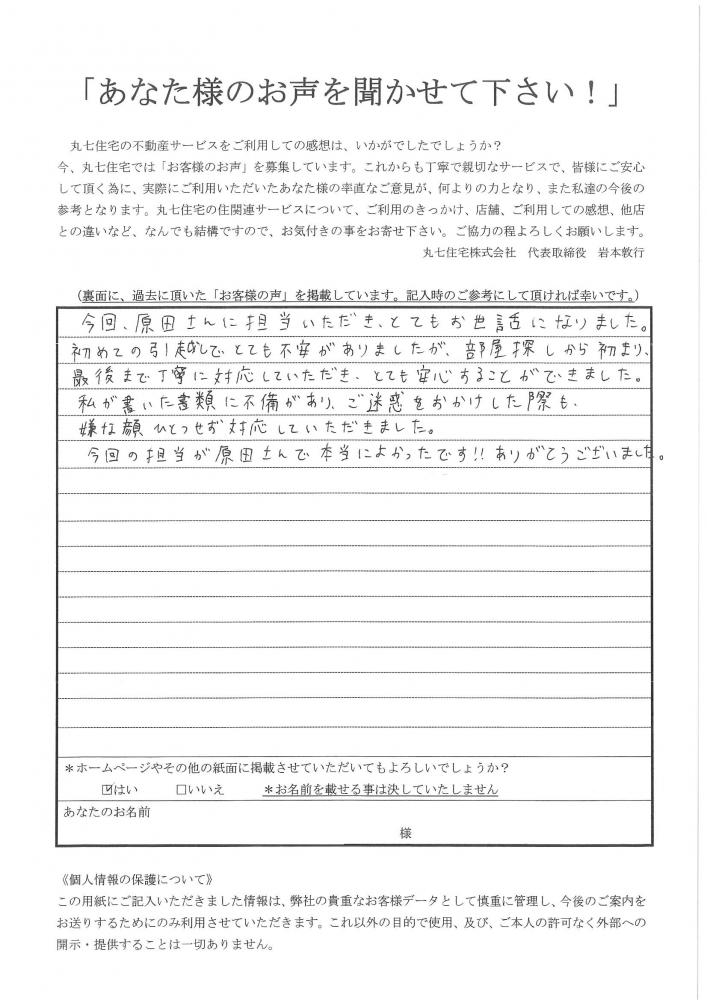 「あなた様のお声を聞かせて下さい！」
丸七住宅の不動産サービスをご利用しての感想は、いかがでしたでしょうか？
今、丸七住宅では「お客様のお声」を募集しています。これからも丁寧で親切なサービスで、皆様にご安心
して頂く為に、実際にご利用いただいたあなた様の率直なご意見が、何よりの力となり、また私達の今後の
参考となります。丸七住宅の住関連サービスについて、ご利用のきっかけ、店舗、ご利用しての感想、他店
との違いなど、なんでも結構ですので、お気付きの事をお寄せ下さい。ご協力の程よろしくお願いします。
丸七住宅株式会社　代表取締役　岩本敦行
（裏面に、過去に頂いた「お客様の声」を掲載しています。記入時のご参考にして頂ければ幸いです。）
今回、原田さんに担当いただき、とてもお世話になりました。
初めての引越しでとても不安がありましたが、部屋探しから初まり、
最後まで丁寧に対応していただき、とても安心することができました。
私が書いた書類に不備があり、ご迷惑をおかけした際も、
嫌な顔ひとつせず対応していただきました。
今回の担当が原田さんで本当によかったです!! ありがとうございました。
＊ホームページやその他の紙面に掲載させていただいてもよろしいでしょうか？
☑はい　□いいえ　＊お名前を載せる事は決していたしません
あなたのお名前
様
《個人情報の保護について》
この用紙にご記入いただきました情報は、弊社の貴重なお客様データとして慎重に管理し、今後のご案内を
お送りするためにのみ利用させていただきます。これ以外の目的で使用、及び、ご本人の許可なく外部への
開示・提供することは一切ありません。